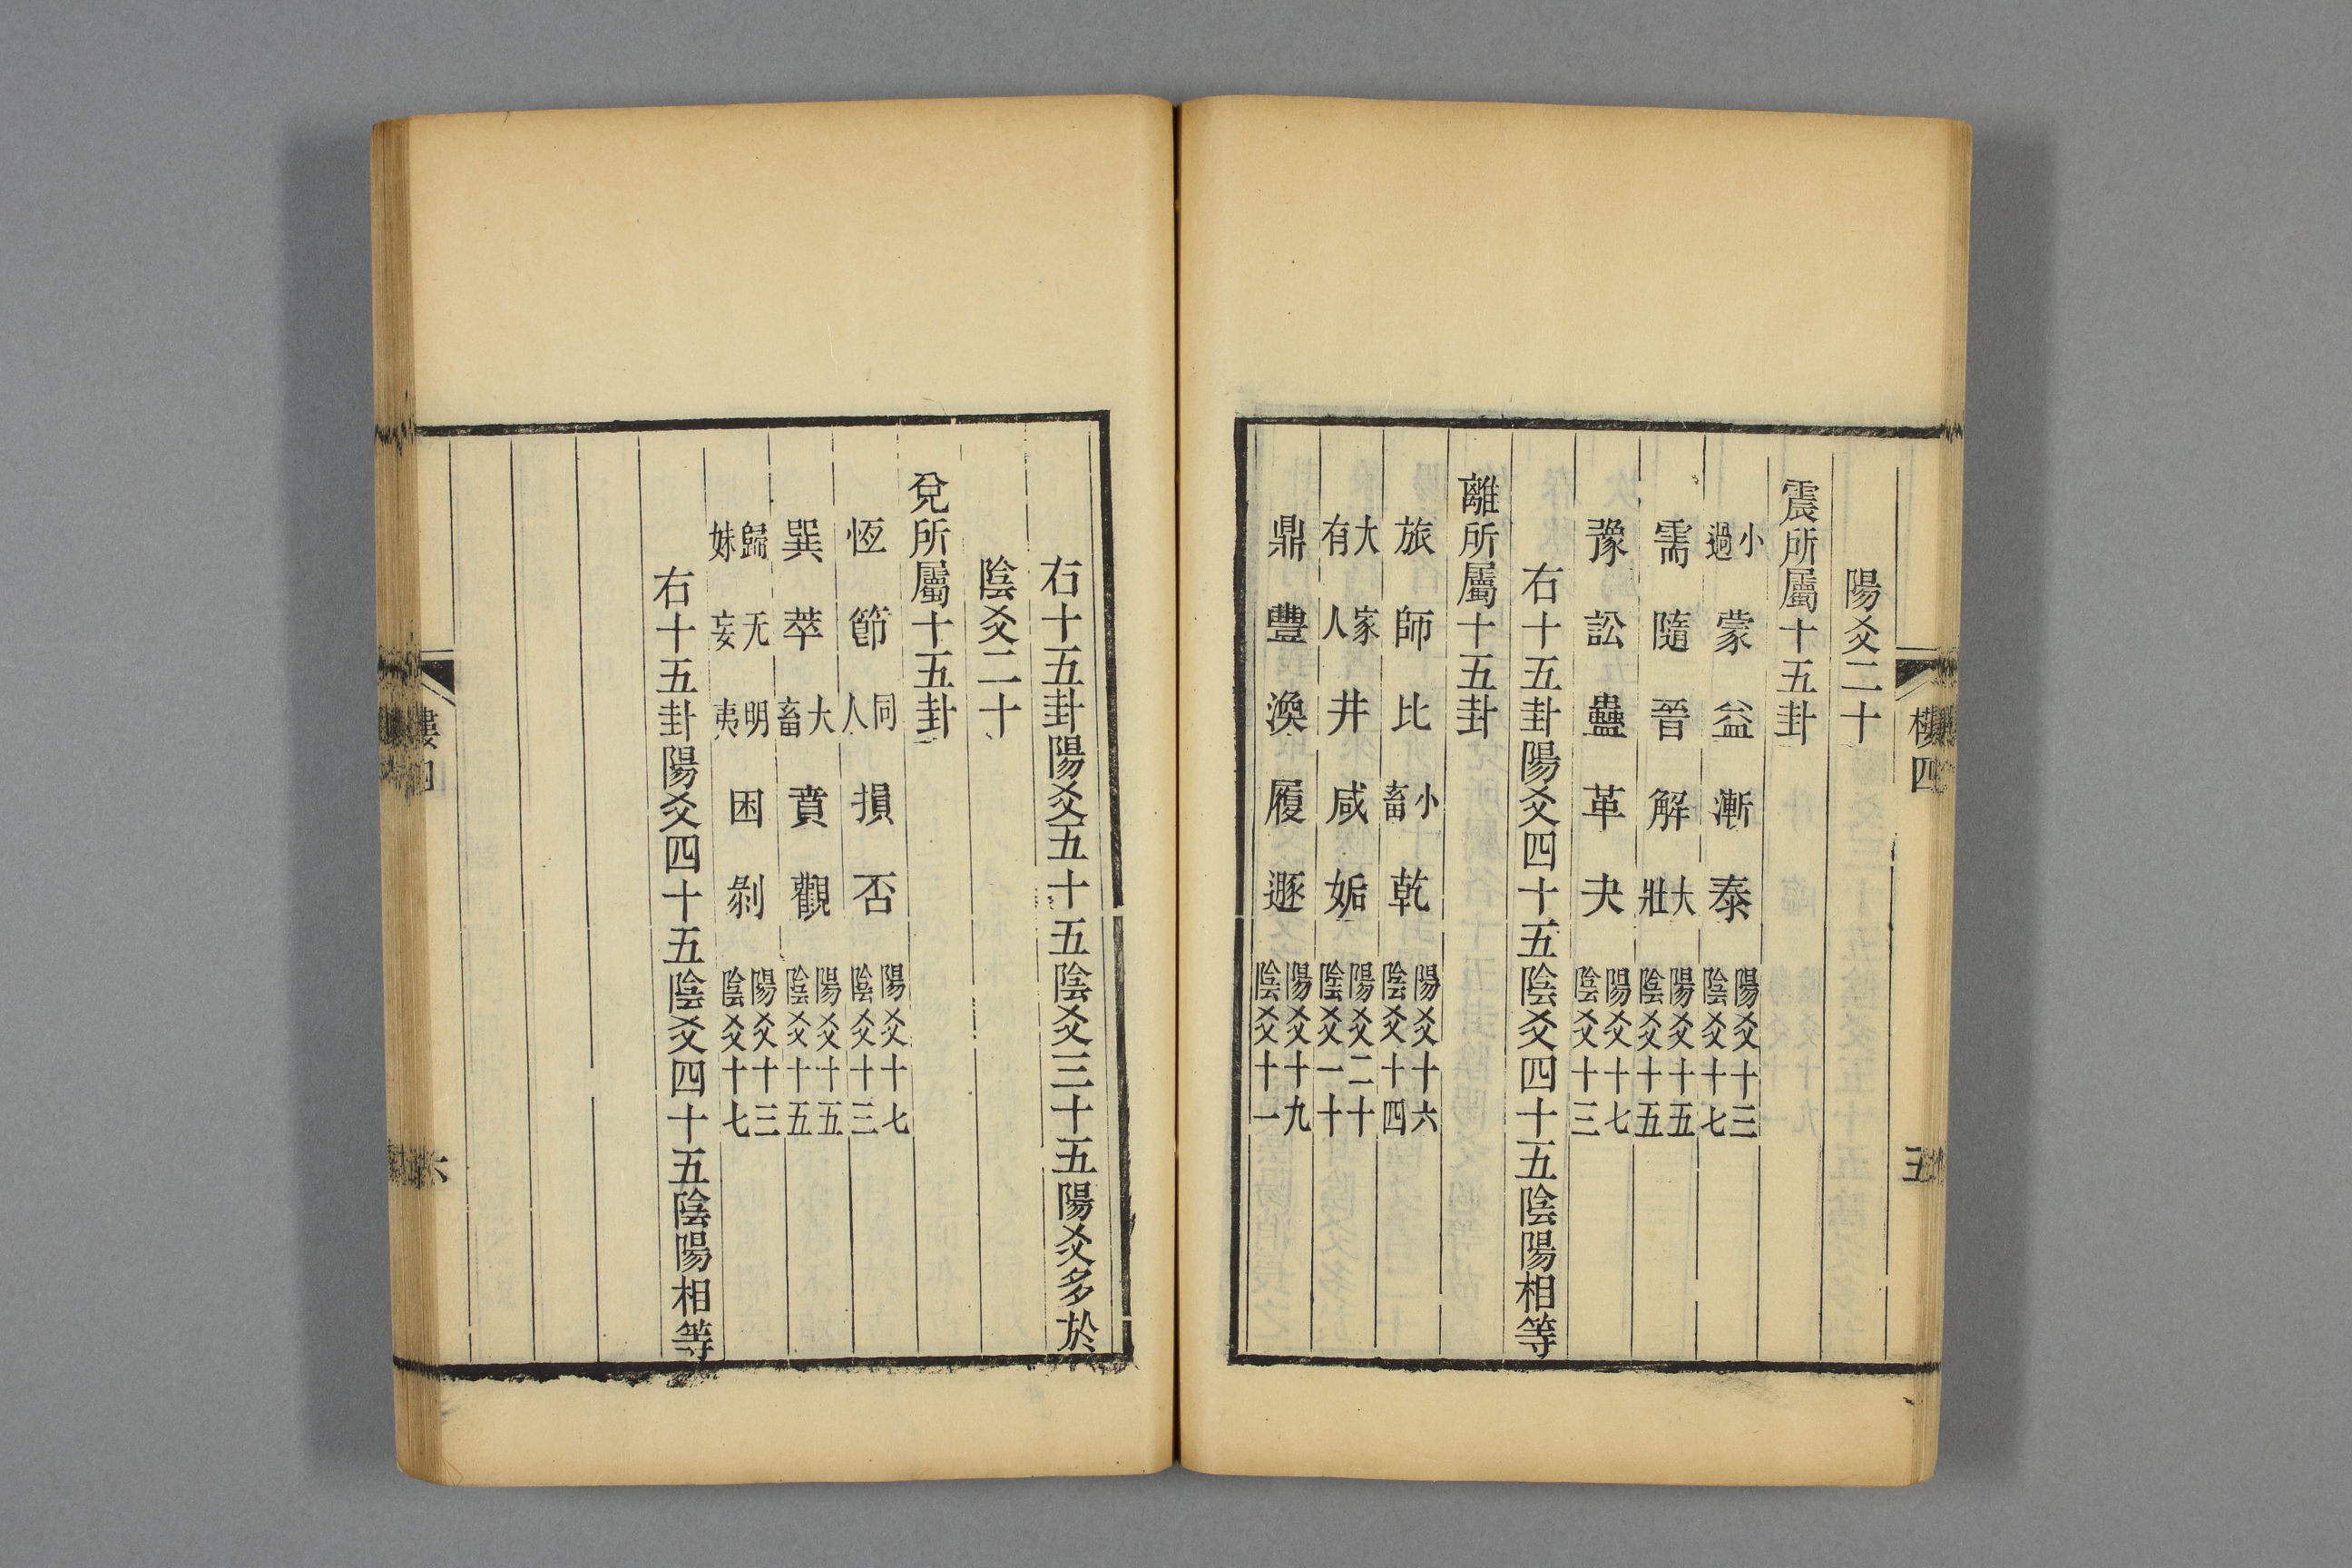 陽爻二十
震所屬十五卦
小過 蒙 益 漸 泰 陽爻十三陰爻十七
需 隨 晉 解 大壯 陽爻十五陰爻十五
豫 訟 蠱 革 夬 陽爻十七陰爻十三
右十五卦陽爻四十五陰爻四十五陰陽相等
離所屬十五卦
旅 師 比 小畜 乾 陽爻十六陰爻十四
大有 家人 井 咸 姤 陽爻二十陰爻一十
鼎 豐 渙 履 遯 陽爻十九陰爻十一
右十五卦陽爻五十五陰爻三十五陽爻多於
陰爻二十
兌所屬十五卦
恆 節 同人 損 否 陽爻十七陰爻十三
巽 萃 大畜 賁 觀 陽爻十五陰爻十五
歸妹 无妄 明夷 困 剝 陽爻十三陰爻十七
右十五卦陽爻四十五陰爻四十五陰陽相等
四
五
六